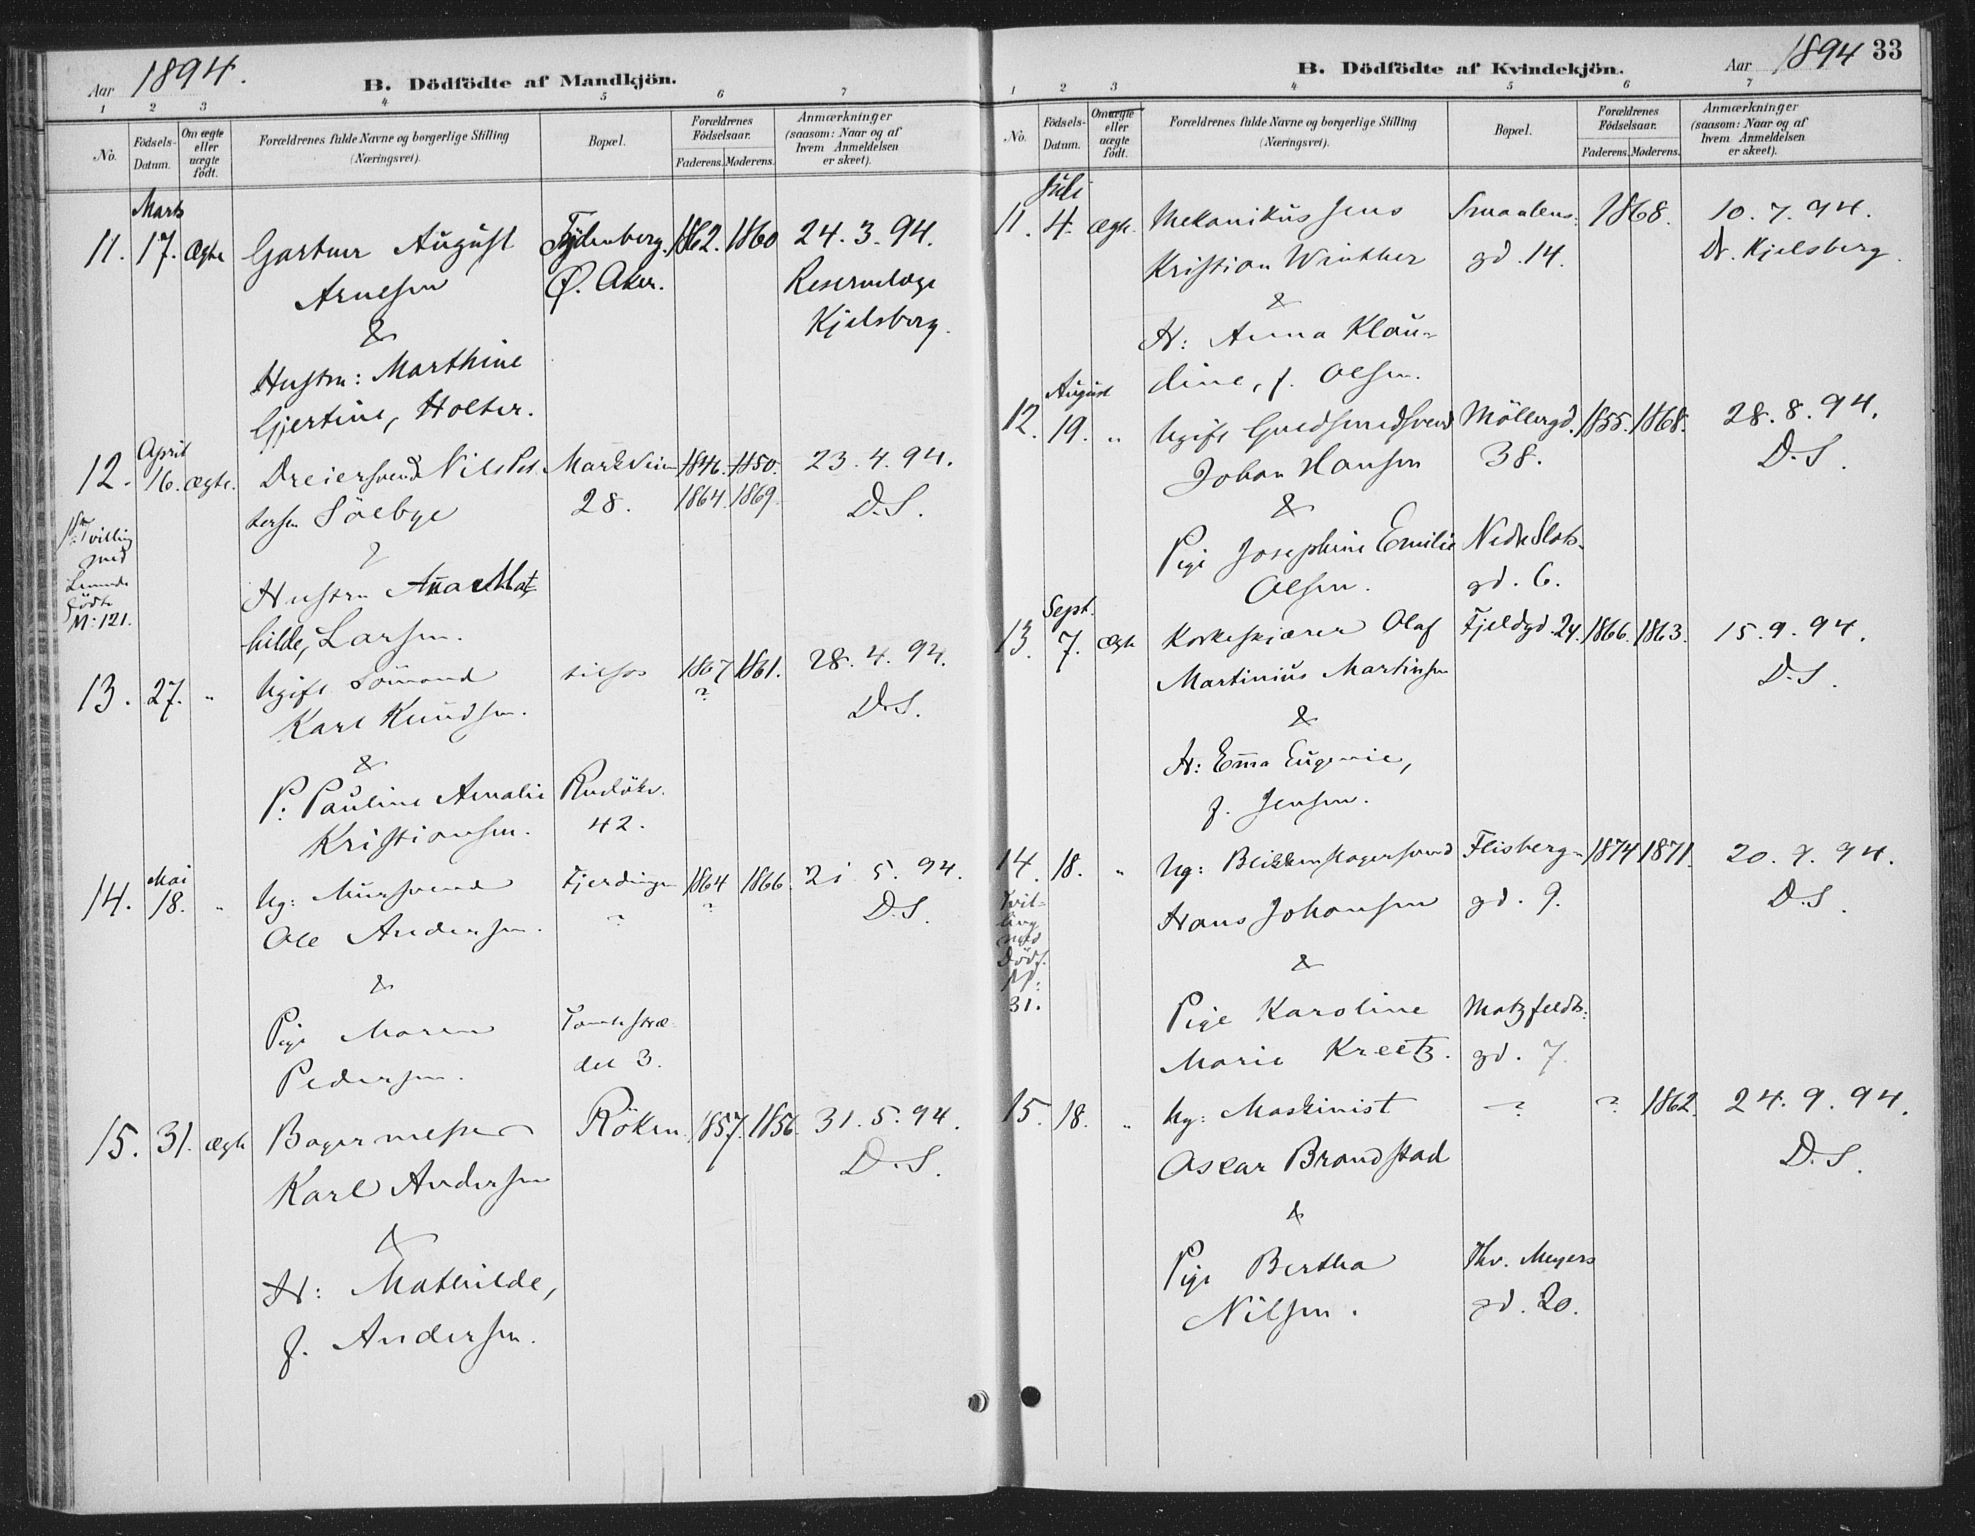 Aar 1894.
B. Dödfödte af Mandkjön.
1 2 3 4 5 6 7
No.
Födsels-Datum.
Om ægte eller uægte født.
Forældrenes fulde Navne og borgerlige Stilling
(Næringsvei).
Bopæl.
Forældrenes Födselsaar.
Faderens. Moderens.
Anmærkninger
(saasom: Naar og af
hvem Anmeldelsen
er skeet).
Marts
11. 17. Ægte Gartner August 1862. 1860 24.3.94.
Arnesen Ø. Aker. Reservelæge
& Kjelsberg.
Hustru: Marthine
Gjertine, Holter.
April
12. 16. ægte. Dreiersvend Nils Pet- Markveien 1846. 1850. 23.4.94.
tersen Sölbye 28. 1864 1869. D.S.
Tvilling
med
Levende
födte
M: 121.
Hustru Anna Mat-
hilde, Larsen.
13. 27. " Ugift Sömand tilsøs 1867 1861. 28.4.94.
Karl Knudsen. ? D.S.
&
P: Pauline Amalie
Kristiansen. 42.
Mai
14. 18. " Ug: Mursvend Fjerdingen 1864 1866. 21.5.94.
Ole Andersen. ? ? D.S.
&
Pige Maren Tomtestræ-
Pedersen. det 3.
15. 31. ægte Bagermester Röken 1857. 1856. 31.5.94.
Karl Andersen D.S.
&
H: Mathilde,
f. Andersen.
B. Dödfödte af Kvindekjön.
Aar 1894 33
1 2 3 4 5 6 7
No.
Födsels-Datum.
Om ægte eller uægte født.
Forældrenes fulde Navne og borgerlige Stilling
(Næringsvei).
Bopæl.
Forældrenes Födselsaar.
Faderens. Moderens.
Anmærkninger
(saasom: Naar og af
hvem Anmeldelsen
er skeet).
Juli
11. 4. ægte. Mekanikus Jens Smaalens. 1868. 10.7.94.
Kristian Winther gd. 14. Dr. Kjelsberg.
&
H: Anna Klau-
dine, f. Olsen.
August
12. 19. " Ugift Guldsmedsvend Möllergd. 1855. 1868. 28.8.94.
Johan Hansen 38. D.S.
&
Pige Josephine Emilie Nedre Slots-
Olsen. gd. 6.
Sept.
13. 7. ægte Korkeskjærer Olaf Fjeldgd. 24. 1866. 1863. 15.9.94.
Martinius Martinsen D.S.
&
H: Emma Eugenie,
f. Jensen.
14. 18. " Ug: Blikkenslagersvend Flisberg- 1874 1871. 20.9.94.
Hans Johansen gd. 9. D.S.
Tvil-
ling
med
Dödf.
N:
31.
&
Pige Karoline Motzfeldts.
Marie Kreetz. gd. 7.
15. 18. " Ug: Maskinist — ? ? 1862. 24.9.94.
Oskar Brandstad D.S.
&
Pige Bertha Thv. Meyers
Nilsen. gd. 20.